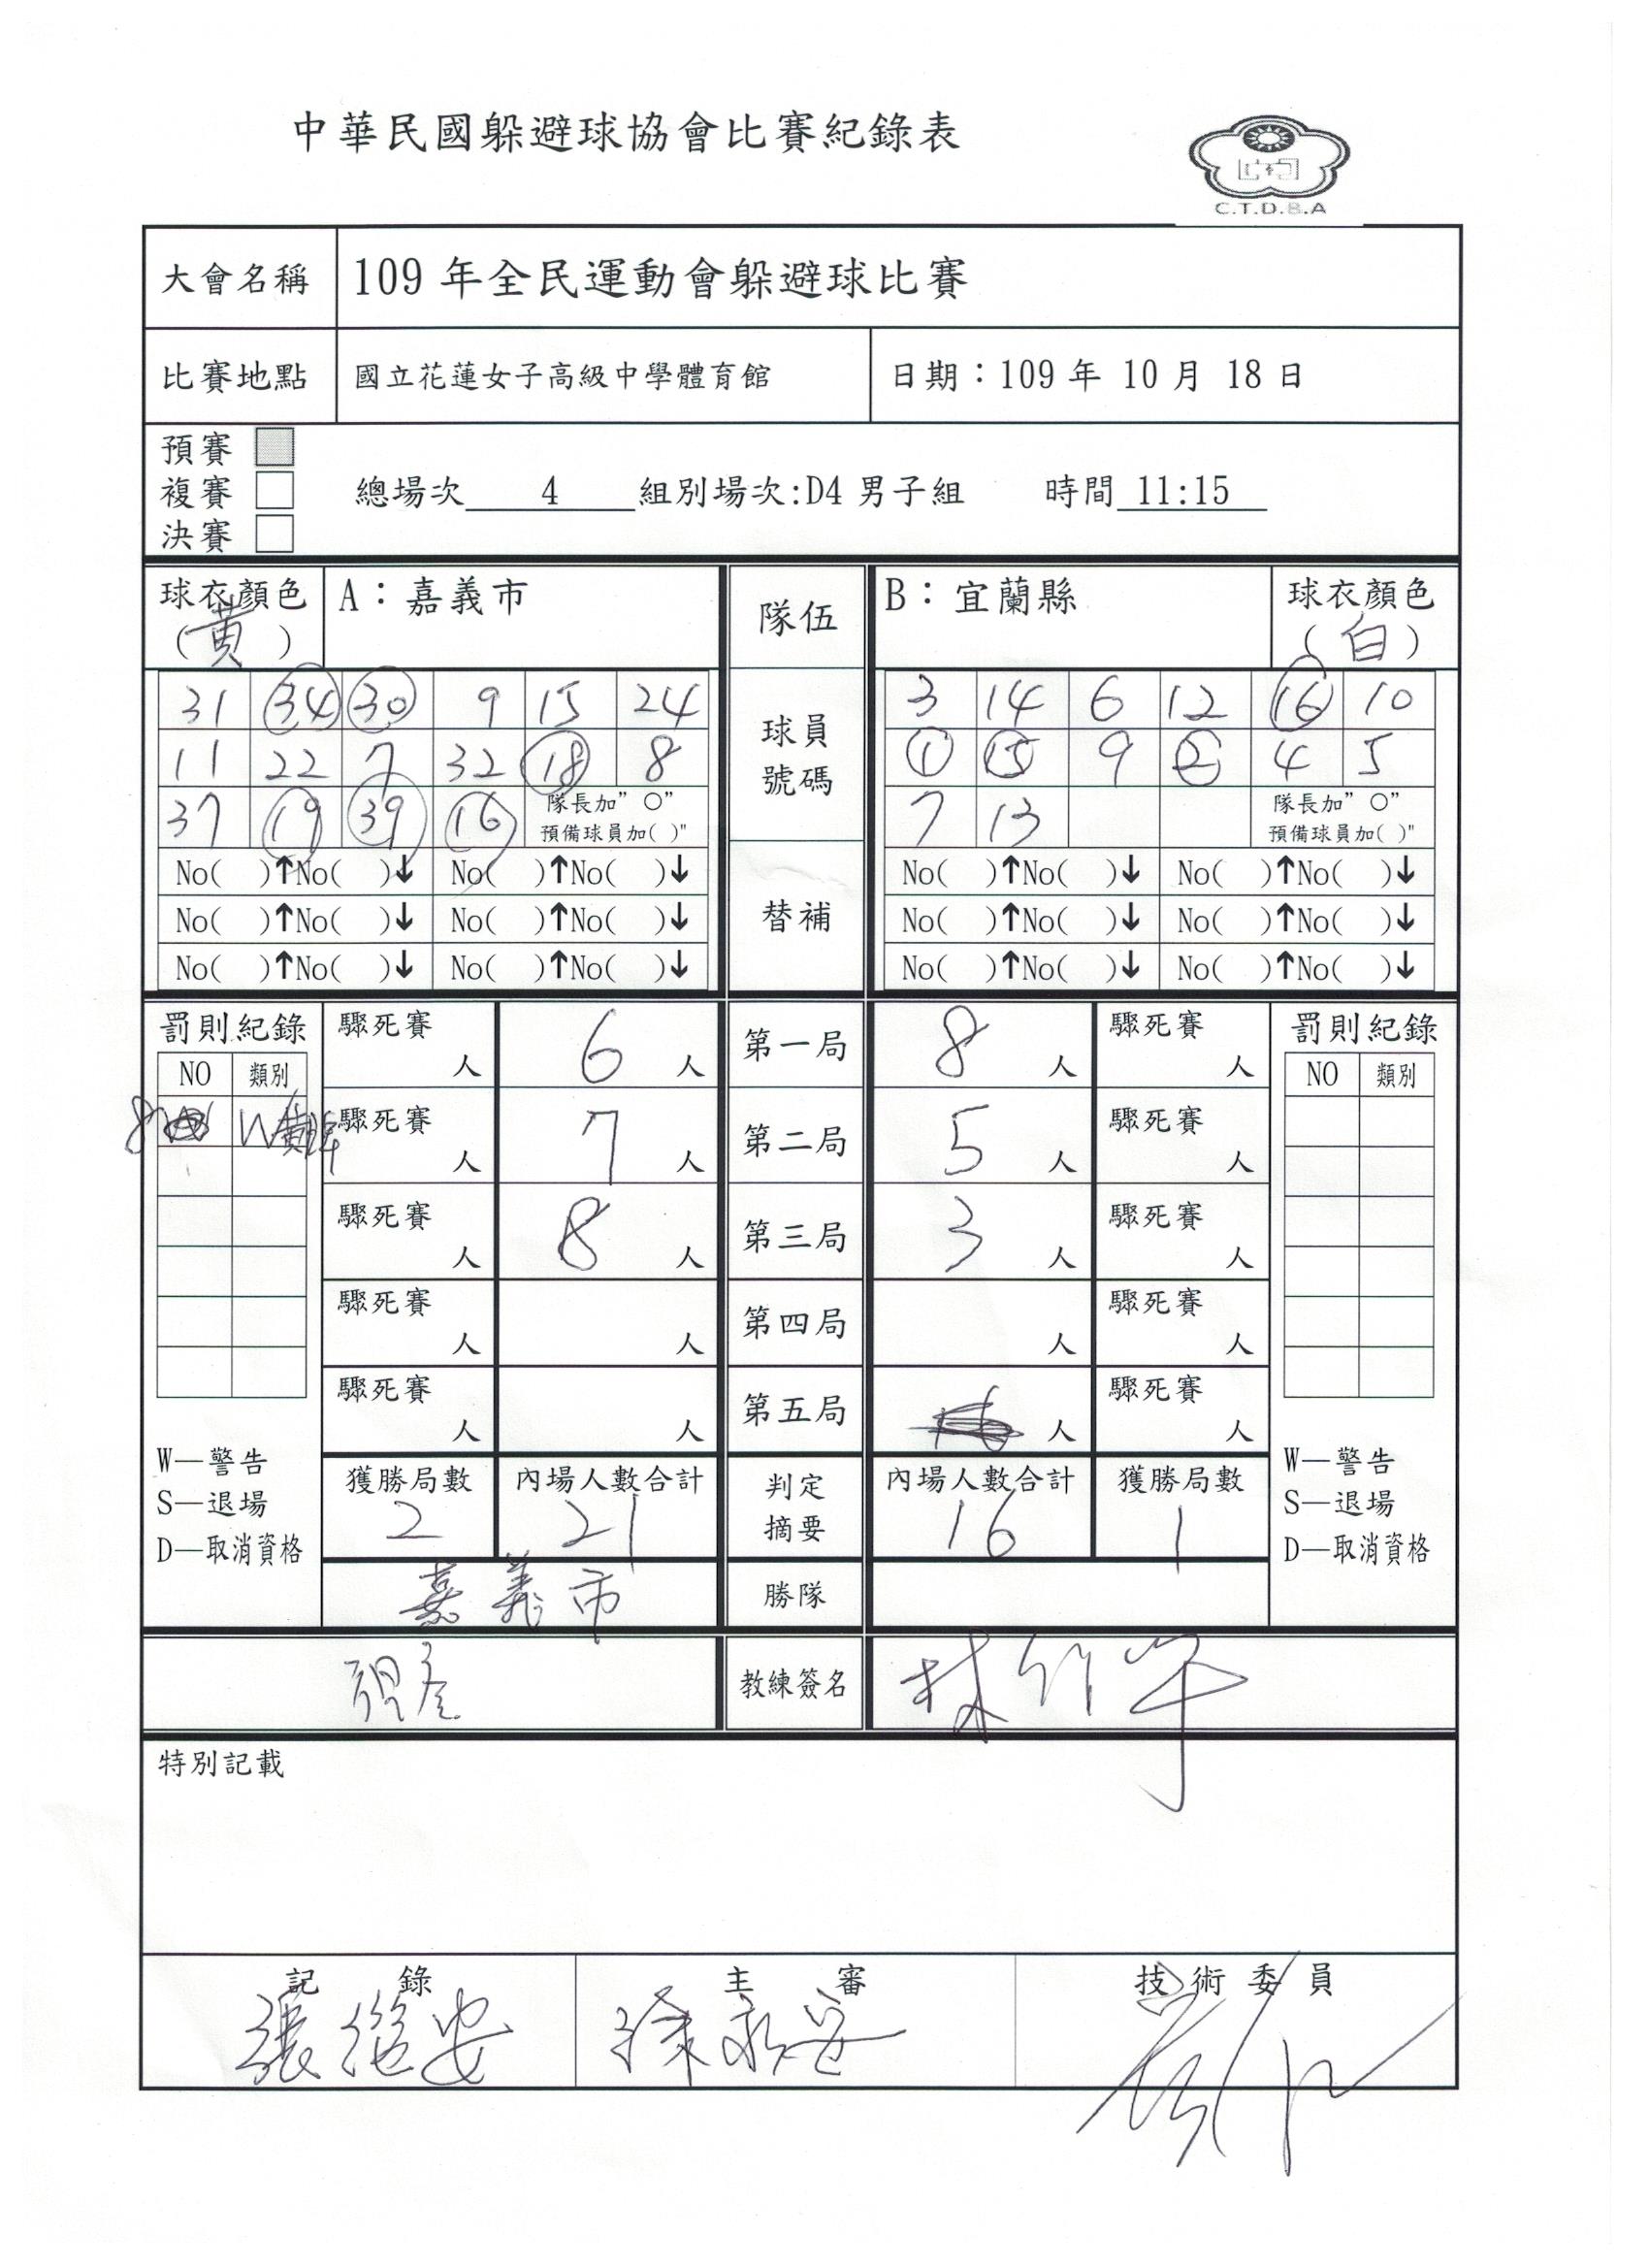 中華民國躲避球協會比賽紀錄表
C.T.D.B.A
大會名稱 109 年全民運動會躲避球比賽
比賽地點 國立花蓮女子高級中學體育館 日期：109 年 10 月 18 日
預賽
複賽
決賽
總場次 4 組別場次:D4 男子組 時間 11:15
球衣顏色 A：嘉義市 隊伍 B：宜蘭縣 球衣顏色
(黃) (白)
31 34 30 9 15 24 球員 3 14 6 12 16 10
11 22 7 32 18 8 號碼 1 15 9 2 4 5
37 19 39 16 隊長加”○” 7 13 隊長加”○”
預備球員加( )" 預備球員加( )"
No( )↑No( )↓ No( )↑No( )↓ No( )↑No( )↓ No( )↑No( )↓
No( )↑No( )↓ No( )↑No( )↓ 替補 No( )↑No( )↓ No( )↑No( )↓
No( )↑No( )↓ No( )↑No( )↓ No( )↑No( )↓ No( )↑No( )↓
罰則紀錄 驟死賽 人 6 人 第一局 8 人 驟死賽 人 罰則紀錄
NO 類別 NO 類別
8 W 驟死賽 人 7 人 第二局 5 人 驟死賽 人
驟死賽 人 8 人 第三局 3 人 驟死賽 人
驟死賽 人 人 第四局 人 驟死賽 人
驟死賽 人 人 第五局 人 驟死賽 人
W—警告 W—警告
S—退場 S—退場
D—取消資格 D—取消資格
獲勝局數 內場人數合計 判定摘要 內場人數合計 獲勝局數
2 21 16 1
嘉義市 勝隊
教練簽名 林竹宇
特別記載
記錄 主審 技術委員
張繼安